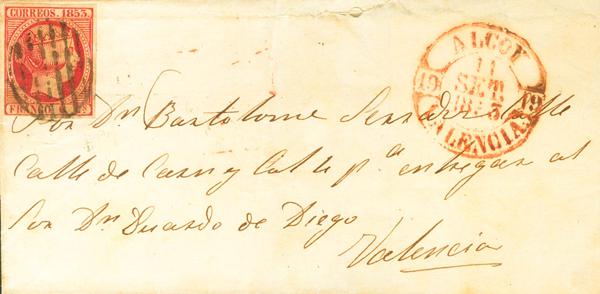 CORREOS. 1853.
FRANCO
ALCOY
11
SET
1853
19 19
VALENCIA.
Sor Dn Bartolome
Calle de y Calle pa entregar al
Sor Dn Duardo de Diego
Valencia